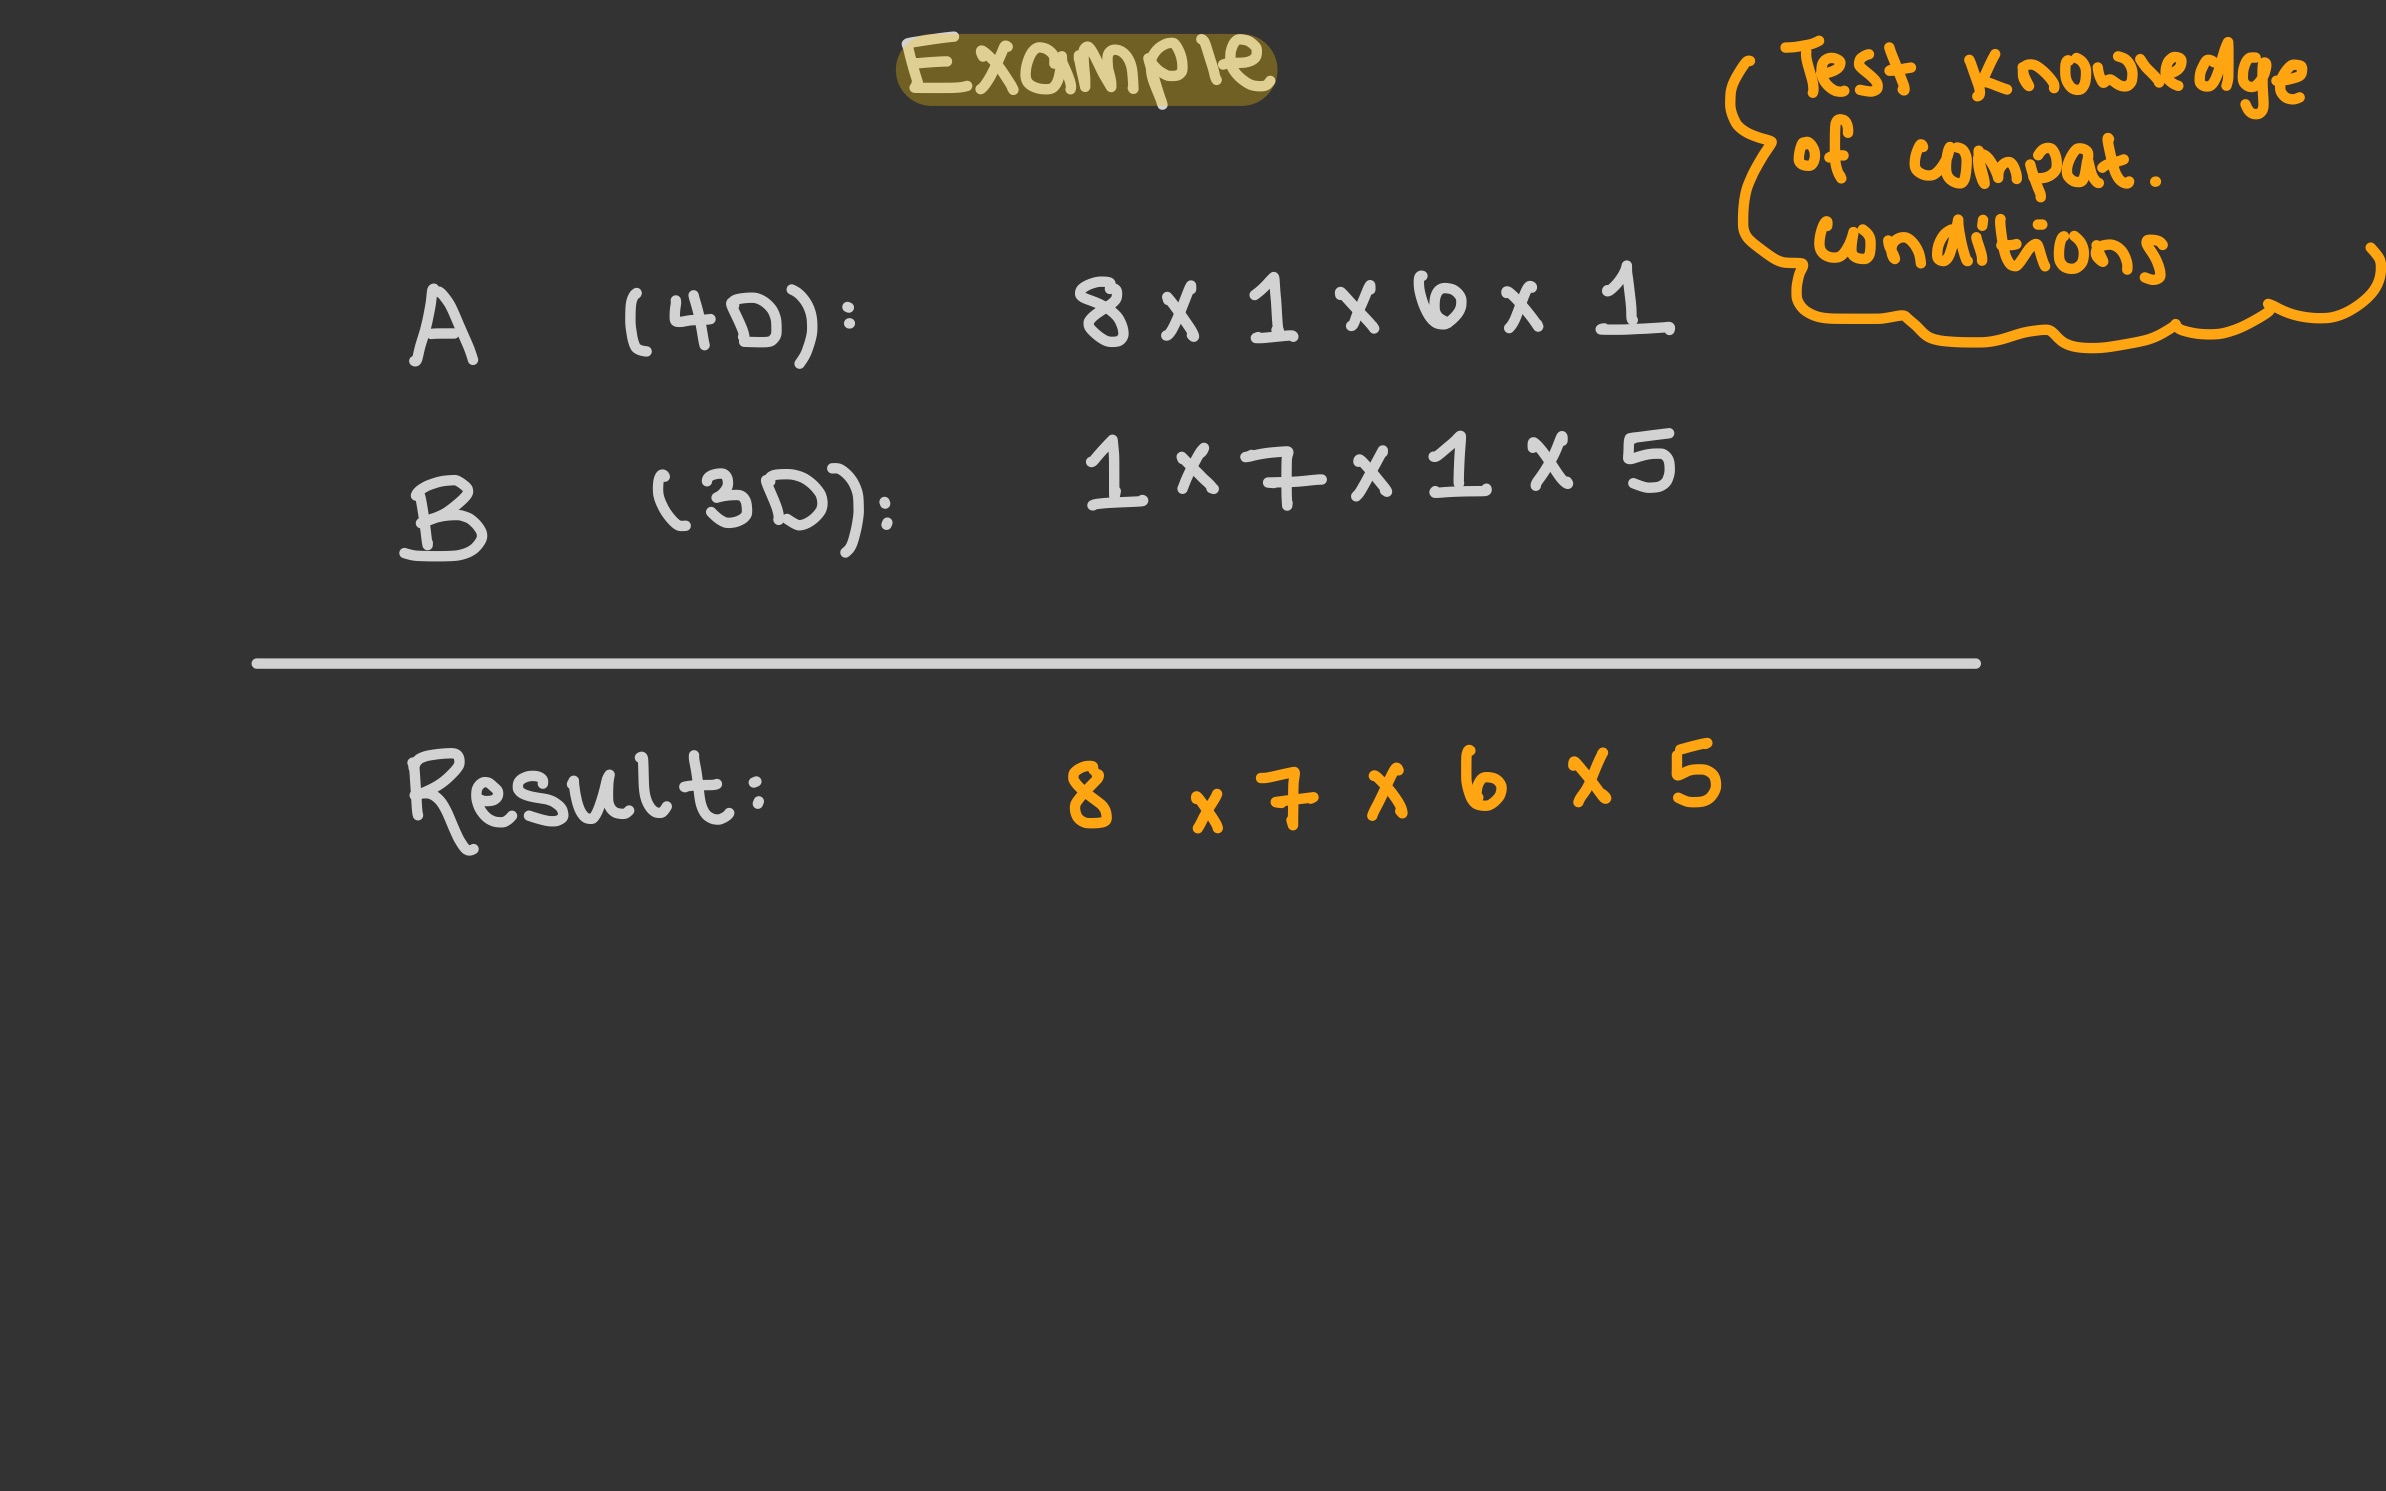 Example
Test Knowledge
of compat.
conditions
A (4D): 8 x 1 x 6 x 1
B (3D): 1 x 7 x 1 x 5
Result: 8 x 7 x 6 x 5